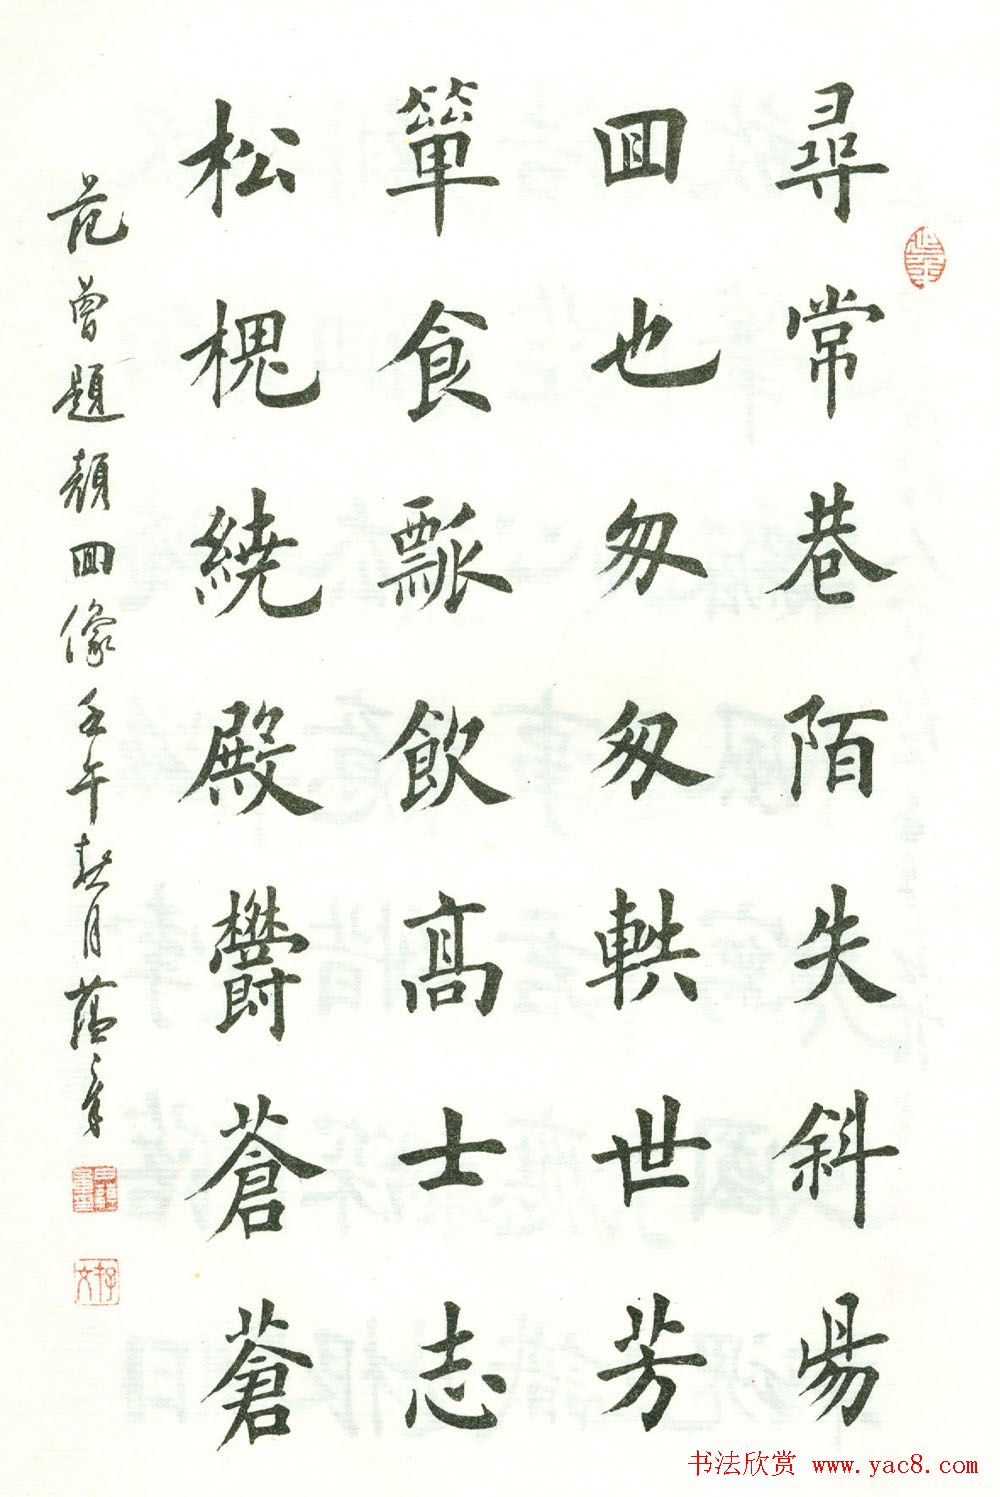 尋常巷陌失斜昜
囬也匆匆軼世芳
簞食瓢飲高士志
松槐繞殿欝蒼蒼
范曾題顏囬像壬午秋月蔭章
书法欣赏 www.yac8.com